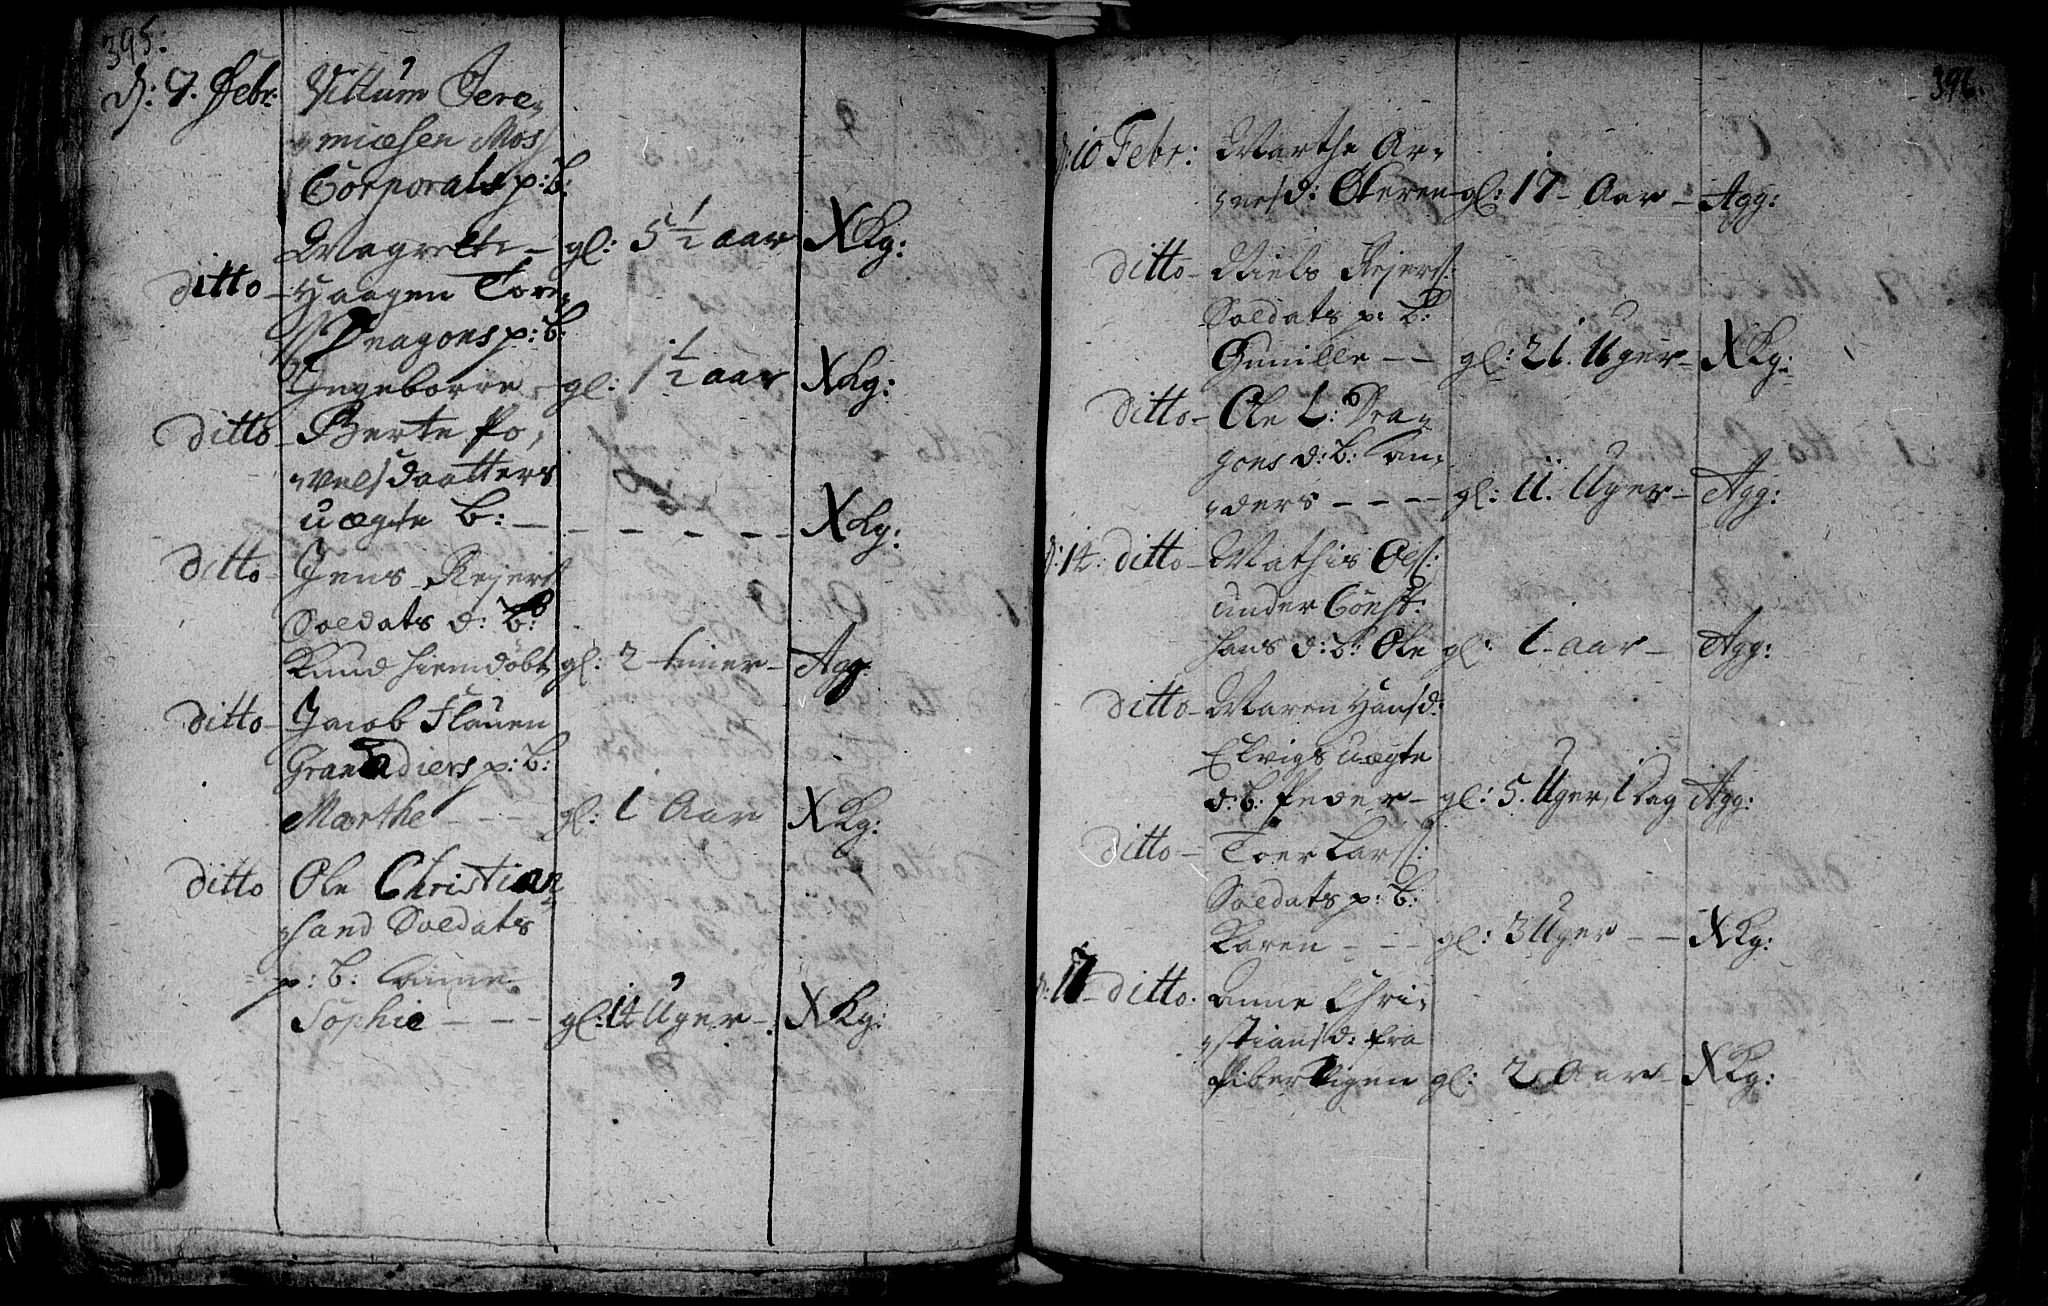 395.
d: 7. Febr: Villum Jere-
miæsen Moss
Corporals p: b:
Magrete - gl: 5 1/2 aar X Kg:
ditto - Haagen Tore-
Dragons p: b:
Ingeborre - gl: 1 1/2 aar X Kg:
ditto - Berte Po-
velsdaatters
uægte b: - - - - - X Kg:
ditto - Jens Rejers
Soldats d: b:
Knud hiemdöbt gl: 2 timer - Agg:
ditto - Jacob Flauen
Granadiers p: b:
Marthe - - - gl: 1 Aar X Kg:
ditto Ole Christian-
sand Soldats
p: b: Anne
Sophie - - - gl: 14 Uger - X Kg:
396.
d: 10 Febr: Marthe Ar-
nesd: Øteren gl: 17 - Aar - Agg:
ditto - Niels Rejers:
Soldats p: b:
Gunille - - gl: 21. Uger - X Kg:
ditto - Ole L: Dra-
gons d: b: An-
ders - - - - gl: 11. Uger - Agg:
d: 14. ditto - Mathis Ols:
under Const:
hans d: b: Ole gl: 1 - aar - Agg:
ditto - Maren Hansd:
Elvigs uægte
d: b: Peder - gl: 5. Uger, 1 Dag Agg:
ditto - Toer Lars:
Soldats p: b:
Karen - - - gl: 3 Uger - - X Kg:
d: 17 - ditto. Anne Chri-
stiansd: fra
Pibervigen gl: 2 Aar - X Kg: